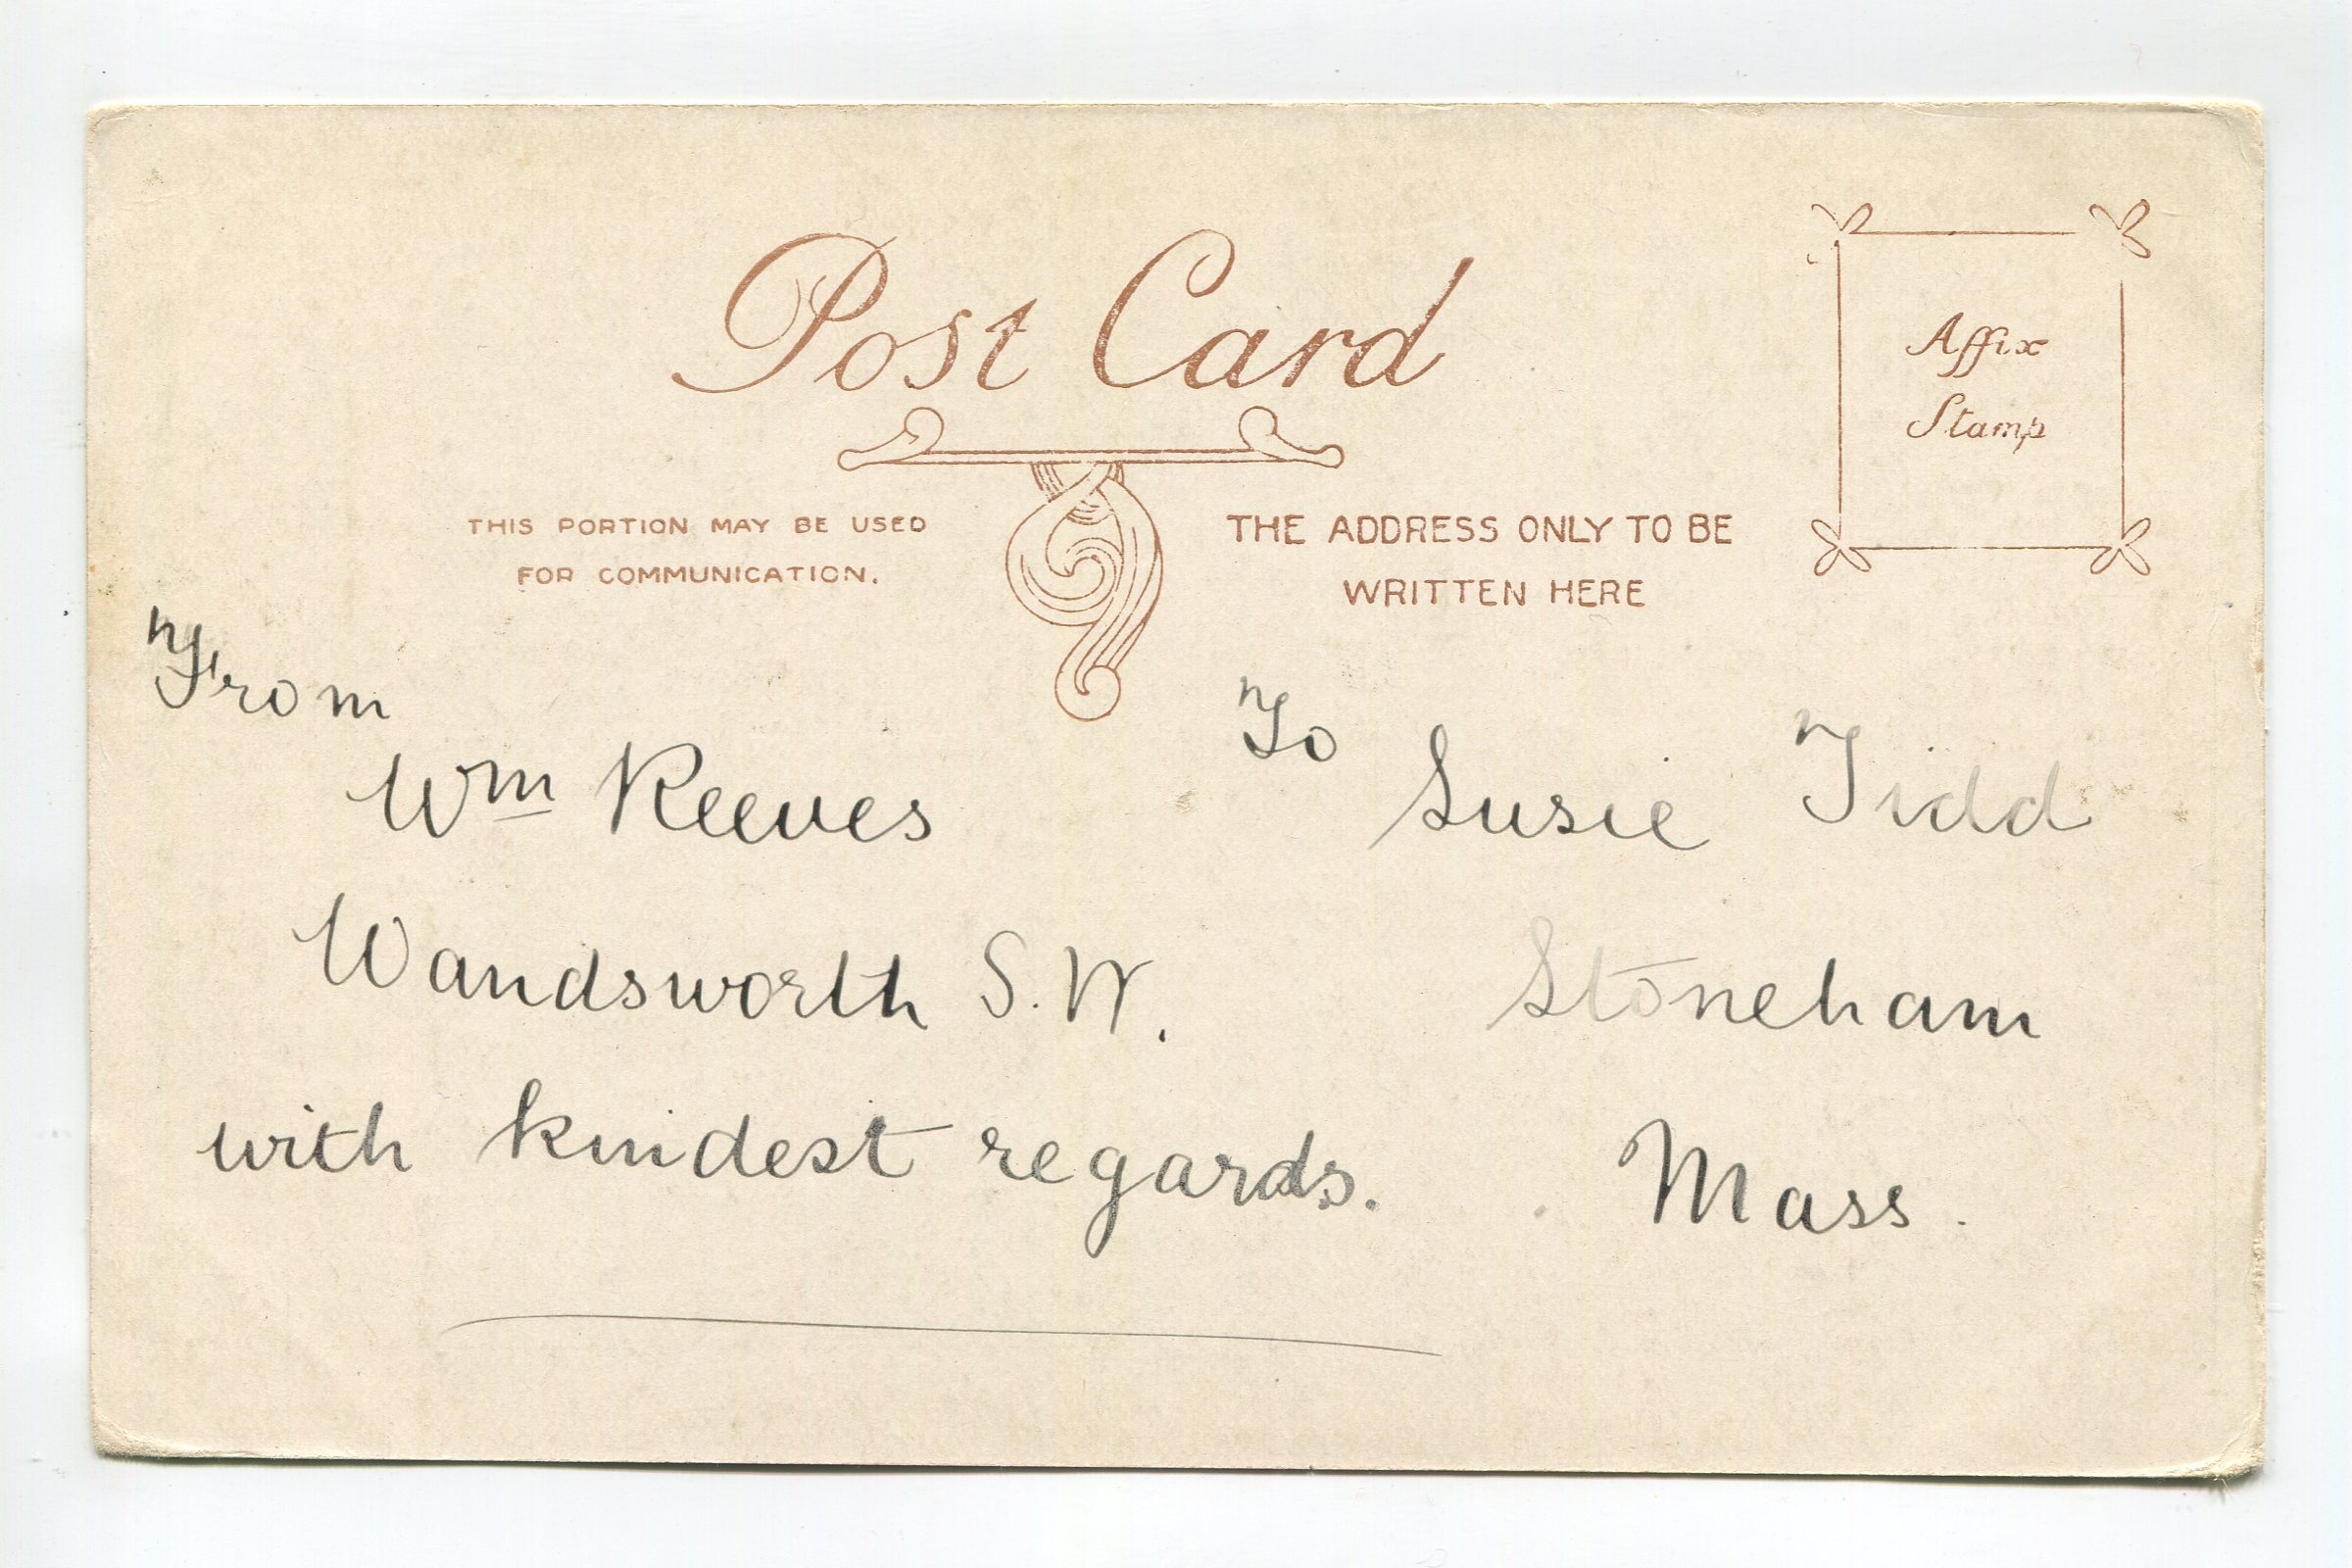 Post Card
Affix
Stamp
THIS PORTION MAY BE USED
FOR COMMUNICATION.
THE ADDRESS ONLY TO BE
WRITTEN HERE
From
Wm Reeves
Wandsworth S.W.
with kindest regards.
To Susie Tidd
Stoneham
Mass.